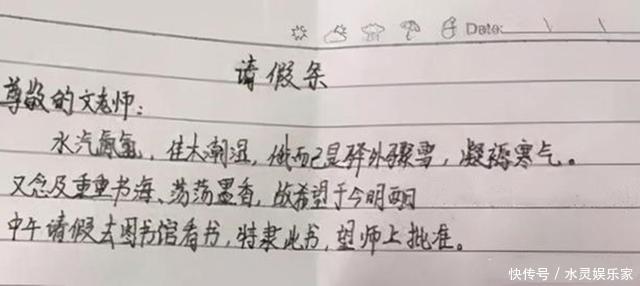 Date:
请假条
尊敬的文老师：
水汽氤氲，佳木潮湿，俄而已是驿外骤雪，凝褥寒气。
又念及重重书海、荡荡墨香，故希望于今明两日
中午请假去图书馆看书，特隶此书，望师上批准。
快传号 / 水灵娱乐家